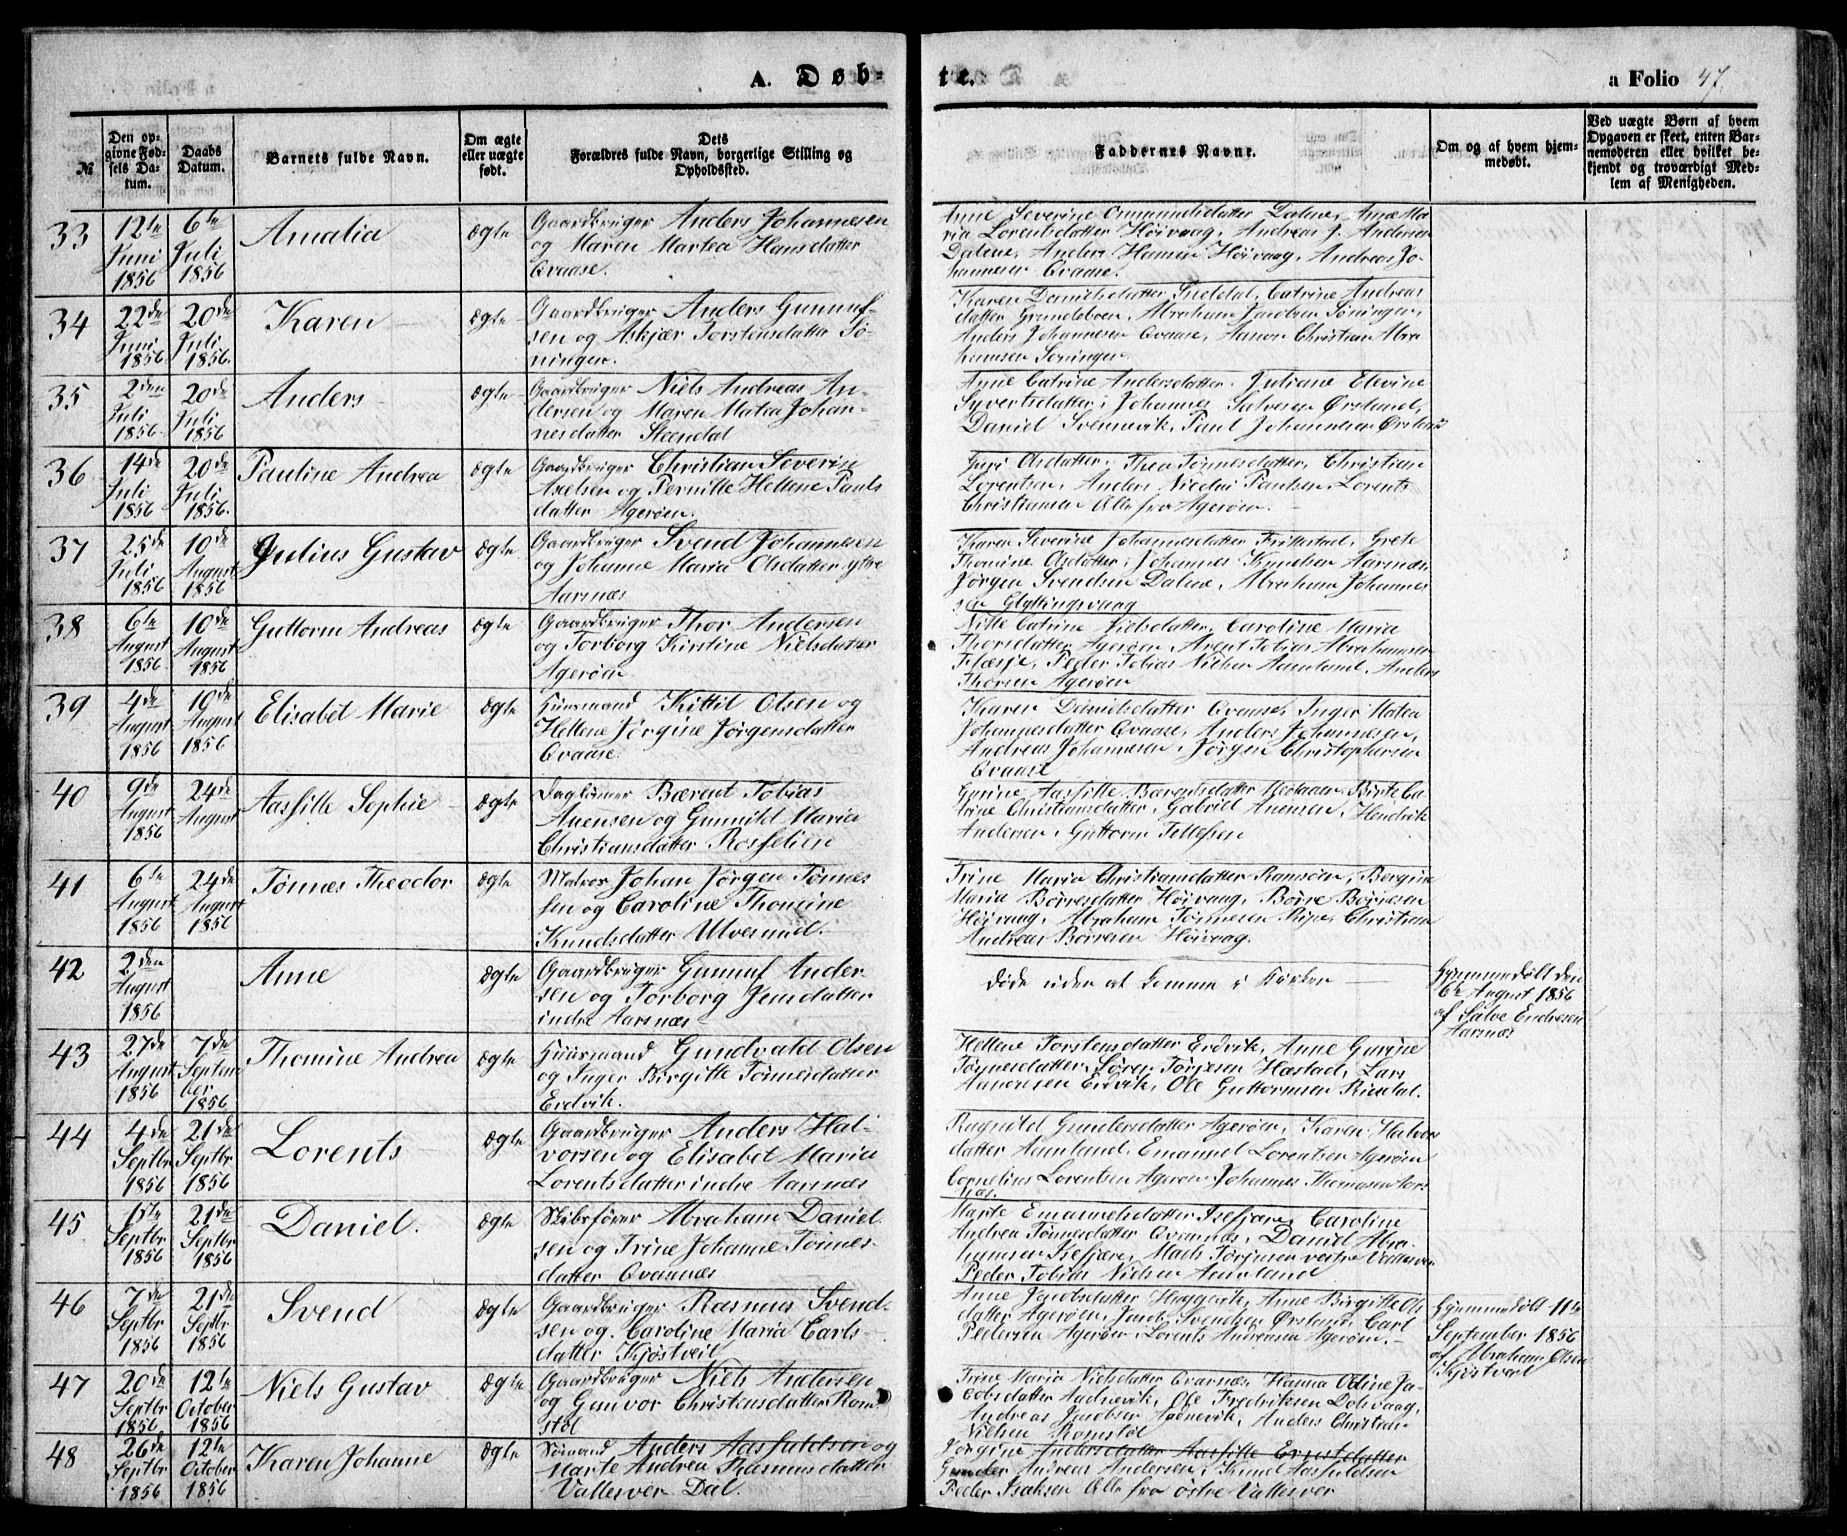 A. Døb-
te.
a Folio 47.
№
Den op-
givne Fød-
sels Da-
tum.
Daabs
Datum.
Barnets fulde Navn.
Om ægte
eller uægte
født.
Dets
Forældres fulde Navn, borgerlige Stilling og
Opholdssted.
Faddernes Navne.
Om og af hvem hjem-
medøbt.
Ved uægte Børn af hvem
Opgaven er skeet, enten Bar-
nemoderen eller hvilket be-
kjendt og troværdigt Med-
lem af Menigheden.
33
12te
Juni
1856
6te
Juli
1856
Amalia
ægte
Gaardbruger Anders Johannesen
og Maren Martea Hansdatter
Qvaase.
Anne Severine Omamdsdatter Dalene, Anne Ma-
ria Lorentsdatter Høivaag, Andreas J. Andersen
Dalene, Anders Hansen Høivaag, Andreas Jo-
hannesen Qvaase.
34
22de
Juni
1856
20de
Juli
1856.
Karen
ægte
Gaardbruger Anders Gunnuf-
sen og Askjær Torstensdatter Tø-
ningen.
Karen Danielsdatter Inddal, Catrine Andreas
datter Grundeloen, Abraham Jacobsen Tøningen,
Anders Johannesen Qvaase, Aanon Christian Abra
hamsen Toningen
35
2den
Juli
1856.
20de
Juli
1856
Anders
ægte
Gaardbruger Niels Andreas An-
dersen og Maren Matea Johan-
nesdatter Steendal
Anne Catrine Andersdatter, Juliane Elevine
Syvertsdatter, Johannes Salvesen Ørsland,
Daniel Svennevik, Paul Johannesen Ørsland
36
14de
Juli
1856
20de
Juli
1856.
Pauline Andrea
ægte
Gaardbruger Christian Severin
Axelsen og Pernille Hellene Pauls
datter Agerøen.
Guri Olsdatter, Thea Tønnesdatter, Christian
Lorentsen, Anders Nicolai Paulsen, Lorents
Christiansen Alle fra Agerøen.
37
25de
Juli
1856
10de
August
1856
Julius Gustav
ægte
Gaardbruger Svend Johannesen
og Johanne Maria Olsdatter ytre
Aarsnæs
Karen Severine Johannesdatter Frillestad, Grete
Thomine Olsdatter, Johannes Knudsen Aarsnæs,
Jørgen Svendsen Dalene, Abraham Johannes
sen Glythingsvaag
38
6te
August
1856
10de
August
1856
Guttorm Andreas
ægte
Gaardbruger Thor Andersen
og Torborg Kirstine Nielsdatter
Agerøen
Nille Catrine Nielsdatter, Caroline Maria
Thorsdatter Agerøen, Arent Tobias Abrahamsen
Tilæsje, Peder Tobias Nielsen Aamland, Anders
Thorsen Agerøen
39
4de
August
1856
10de
August
1856
Elisabet Marie
ægte
Huusmand Kittil Olsen og
Hellene Jørgine Jørgensdatter
Qvaase.
Karen Danielsdatter Qvaase, Inger Matea
Johannesdatter Qvaase, Anders Johannesen,
Andreas Johannesen, Jørgen Christophersen
Qvaase
40
9de
August
1856
24de
August
Aasfille Sophie
ægte
Dagløner Bærent Tobias
Anensen og Gunnild Maria
Christiansdatter Rossélien
Gurine Aasfille Barentsdatter, Birte Ca-
trine Christiansdatter, Gabriell Anensen, Hendrik
Andersen, Guttorm Tellefsen
41
6te
August
1856
24de
August
1856
Tønnes Theodor
ægte
Matros Johan Jørgen Tønnes
sen og Caroline Thomine
Knudsdatter Ulvesund.
Trine Maria Christiansdatter Ramsøen, Bergine
Maria Børresdatter Høivaag, Børre Børresen
Høivaag, Abraham Tønnesen Ripe, Christian
Andreas Børresen Høivaag.
42
2den
August
1856
Anne
ægte
Gaardbruger Gunnuf Ander
sen og Torborg Jensdatter
indre Aarsnæs
døde uden at komme i Kirken
Hjemmedøbt den
6te August 1856
af Salve Endresen
Aarsnæs
43
27de
August
1856
7de
Septem
ber
1856
Thomine Andrea
ægte
Huusmand Gundvald Olsen
og Inger Birgitte Tønnesdatter
Erdvik.
Hellene Torstensdatter Erdvik, Anne Gurine
Tønnesdatter, Søren Tørjesen Hæstad, Lars
Andresen Erdvik, Ole Guttormsen Riisdal.
44
4de
Septbr
1856
21de
Septbr
1856
Lorents
ægte
Gaardbruger Anders Hal-
vorsen og Elisabet Maria
Lorentsdatter indre Aarsnæs
Ragnild Gundersdatter Agerøen, Karen Halvors
datter Aamland, Emanuel Lorentsen Agerøen
Cornelius Lorentsen Agerøen, Johannes Thomassen Aars
næs
45
6te
Septbr
1856
21de
Septbr
1856
Daniel.
ægte
Skibsfører Abraham Daniel
sen og Trine Johanne Tønnes-
datter Qvarnæs
Marte Emanuelsdatter Isefjær, Caroline
Andrea Tønnesdatter Qvarnæs, Daniel Abra-
hamsen Isefjære, Mads Tørjesen vestre Vallesver
Peder Tobias Nielsen Aamland
46
7de
Septbr
1856
21de
Septbr
1856
Svend
ægte
Gaardbruger Rasmus Svend-
sen og Caroline Maria Carls-
datter Kjøstveit
Anne Jacobsdatter Haggevik, Anne Birgitte Ols
datter Agerøen, Jacob Svendsen Ørsland, Carl
Pedersen Agerøen, Lorents Andreasen Agerøen.
Hjemmedøbt 11te
September 1856
af Abraham Olsen
Kjøstveit
47
20de
Septbr
1856
12te
October
1856
Niels Gustav
ægte
Gaardbruger Niels Andersen
og Gunvor Christensdatter Rom
støl
Trine Maria Nielsdatter Qvarnæs, Hanna Odine Ja-
cobsdatter Aadnevik, Ole Fredriksen Dalsvaag,
Andreas Jacobsen Aadnevik, Anders Christian
Nielsen Romstøl
48
26de
Septbr
1856
12te
October
1856
Karen Johanne
ægte
Sømand Anders Aasfuldsen og
Marte Andrea Rasmusdatter
Vallesver Dal.
Jørgine Andersdatter Aasfille Ernstdatter
Gunder Andreas Andersen, Knud Aasfuldsen
Peder Isaksen Alle fra østre Vallesver